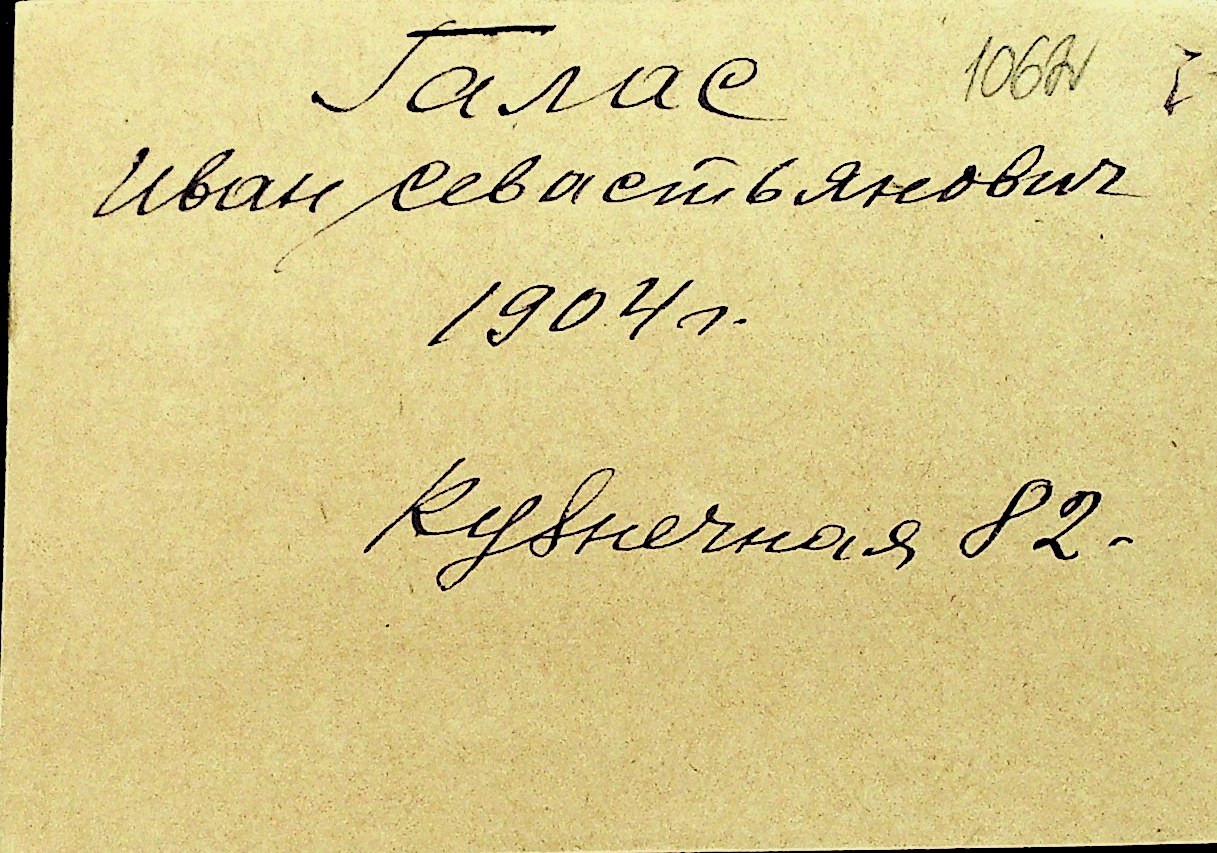 Галас
Иван Севастьянович
1904 г.
Кузнечная 82.